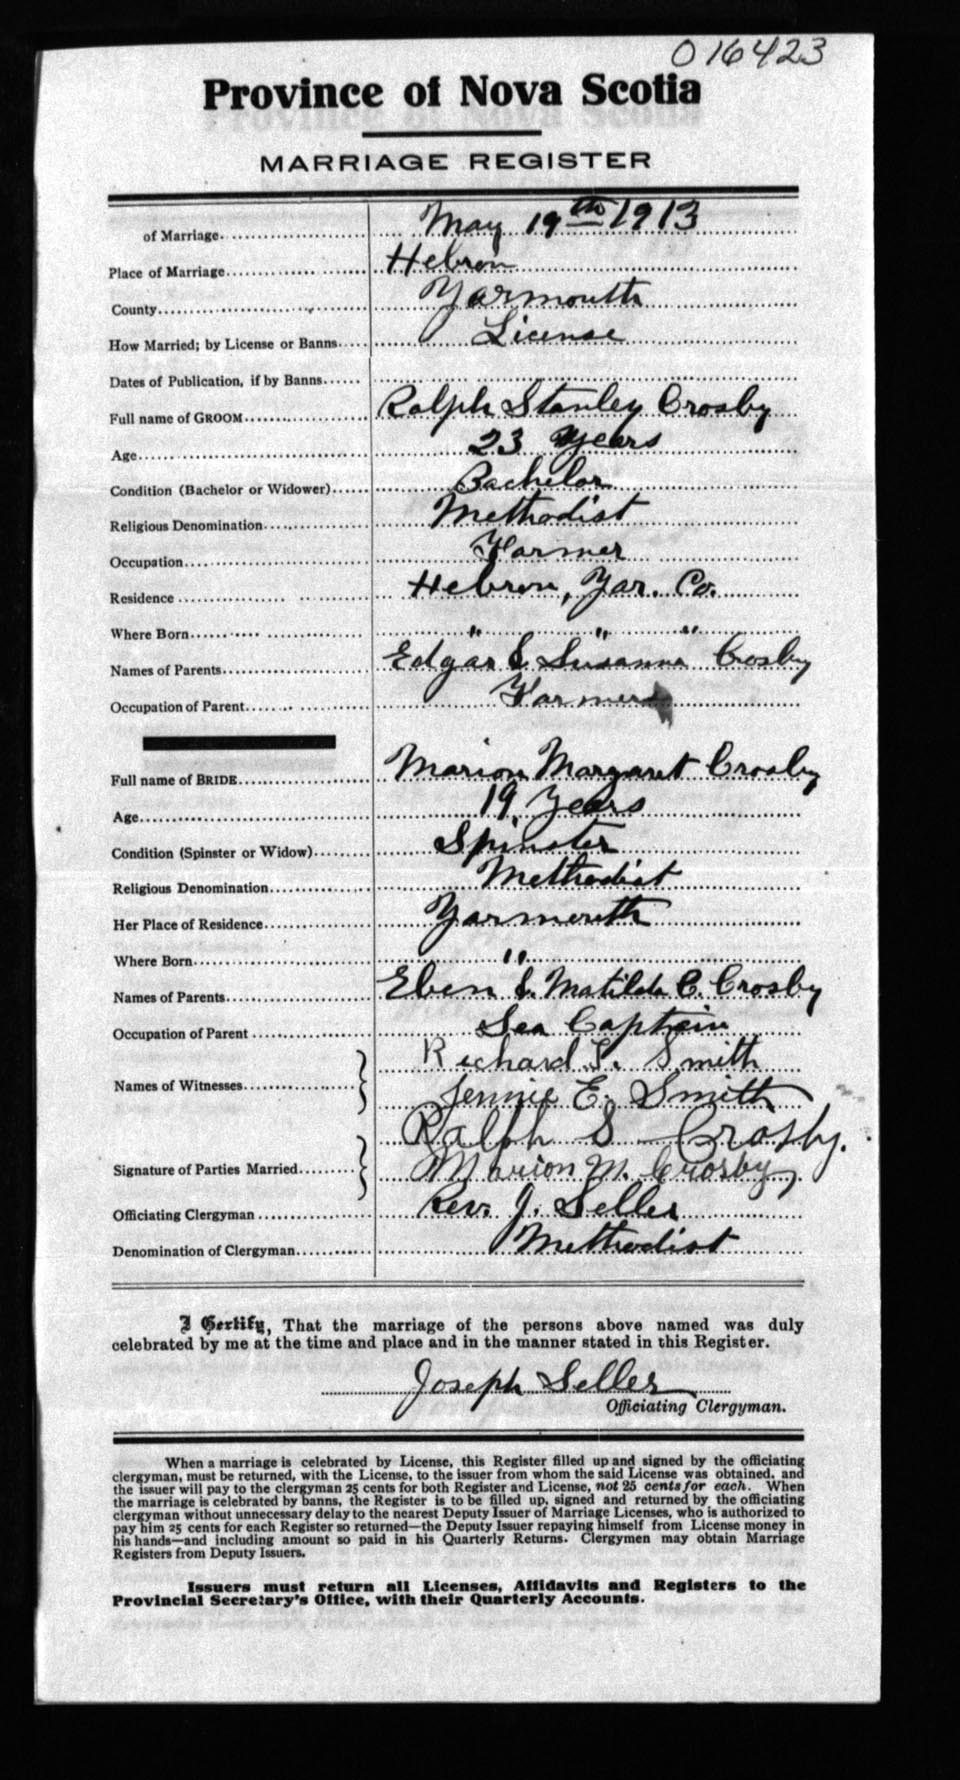 016423
Province of Nova Scotia
MARRIAGE REGISTER
of Marriage May 19th 1913
Place of Marriage Hebron
County Yarmouth
How Married; by License or Banns License
Dates of Publication, if by Banns
Full name of GROOM Ralph Stanley Crosby
Age 23 Years
Condition (Bachelor or Widower) Bachelor
Religious Denomination Methodist
Occupation Farmer
Residence Hebron, Yar. Co.
Where Born " " "
Names of Parents Edgar & Susanna Crosby
Occupation of Parent Farmer
Full name of BRIDE Marion Margaret Crosby
Age 19 Years
Condition (Spinster or Widow) Spinster
Religious Denomination Methodist
Her Place of Residence Yarmouth
Where Born "
Names of Parents Eben & Matilda C. Crosby
Occupation of Parent Sea Captain
Names of Witnesses Richard S. Smith
Jennie E. Smith
Signature of Parties Married Ralph S Crosby.
Marion M. Crosby
Officiating Clergyman Rev. J. Seller
Denomination of Clergyman Methodist
I Certify, That the marriage of the persons above named was duly
celebrated by me at the time and place and in the manner stated in this Register.
Joseph Seller
Officiating Clergyman.
When a marriage is celebrated by License, this Register filled up and signed by the officiating
clergyman, must be returned, with the License, to the issuer from whom the said License was obtained, and
the issuer will pay to the clergyman 25 cents for both Register and License, not 25 cents for each. When
the marriage is celebrated by banns, the Register is to be filled up, signed and returned by the officiating
clergyman without unnecessary delay to the nearest Deputy Issuer of Marriage Licenses, who is authorized to
pay him 25 cents for each Register so returned—the Deputy Issuer repaying himself from License money in
his hands—and including amount so paid in his Quarterly Returns. Clergymen may obtain Marriage
Registers from Deputy Issuers.
Issuers must return all Licenses, Affidavits and Registers to the
Provincial Secretary's Office, with their Quarterly Accounts.